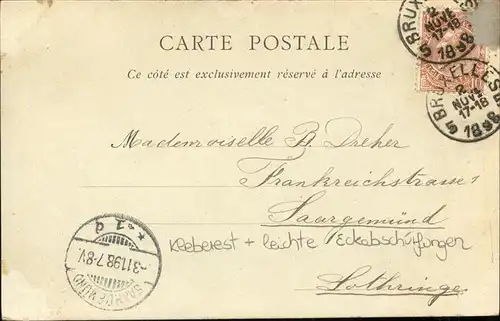 BRUXELLES
5
2
NOVE
17-18
1898
CARTE POSTALE
Ce côté est exclusivement réservé à l'adresse
BRUXELLES
5
2
NOVE
17-18
1898
Mademoiselle B. Dreher
Frankreichstrasse 1
Saargemünd
Kleberest + leichte Eckabschürfungen
Lothringe
* 1 d
-3 11 98. 7-8 V.
SAARGEMÜND